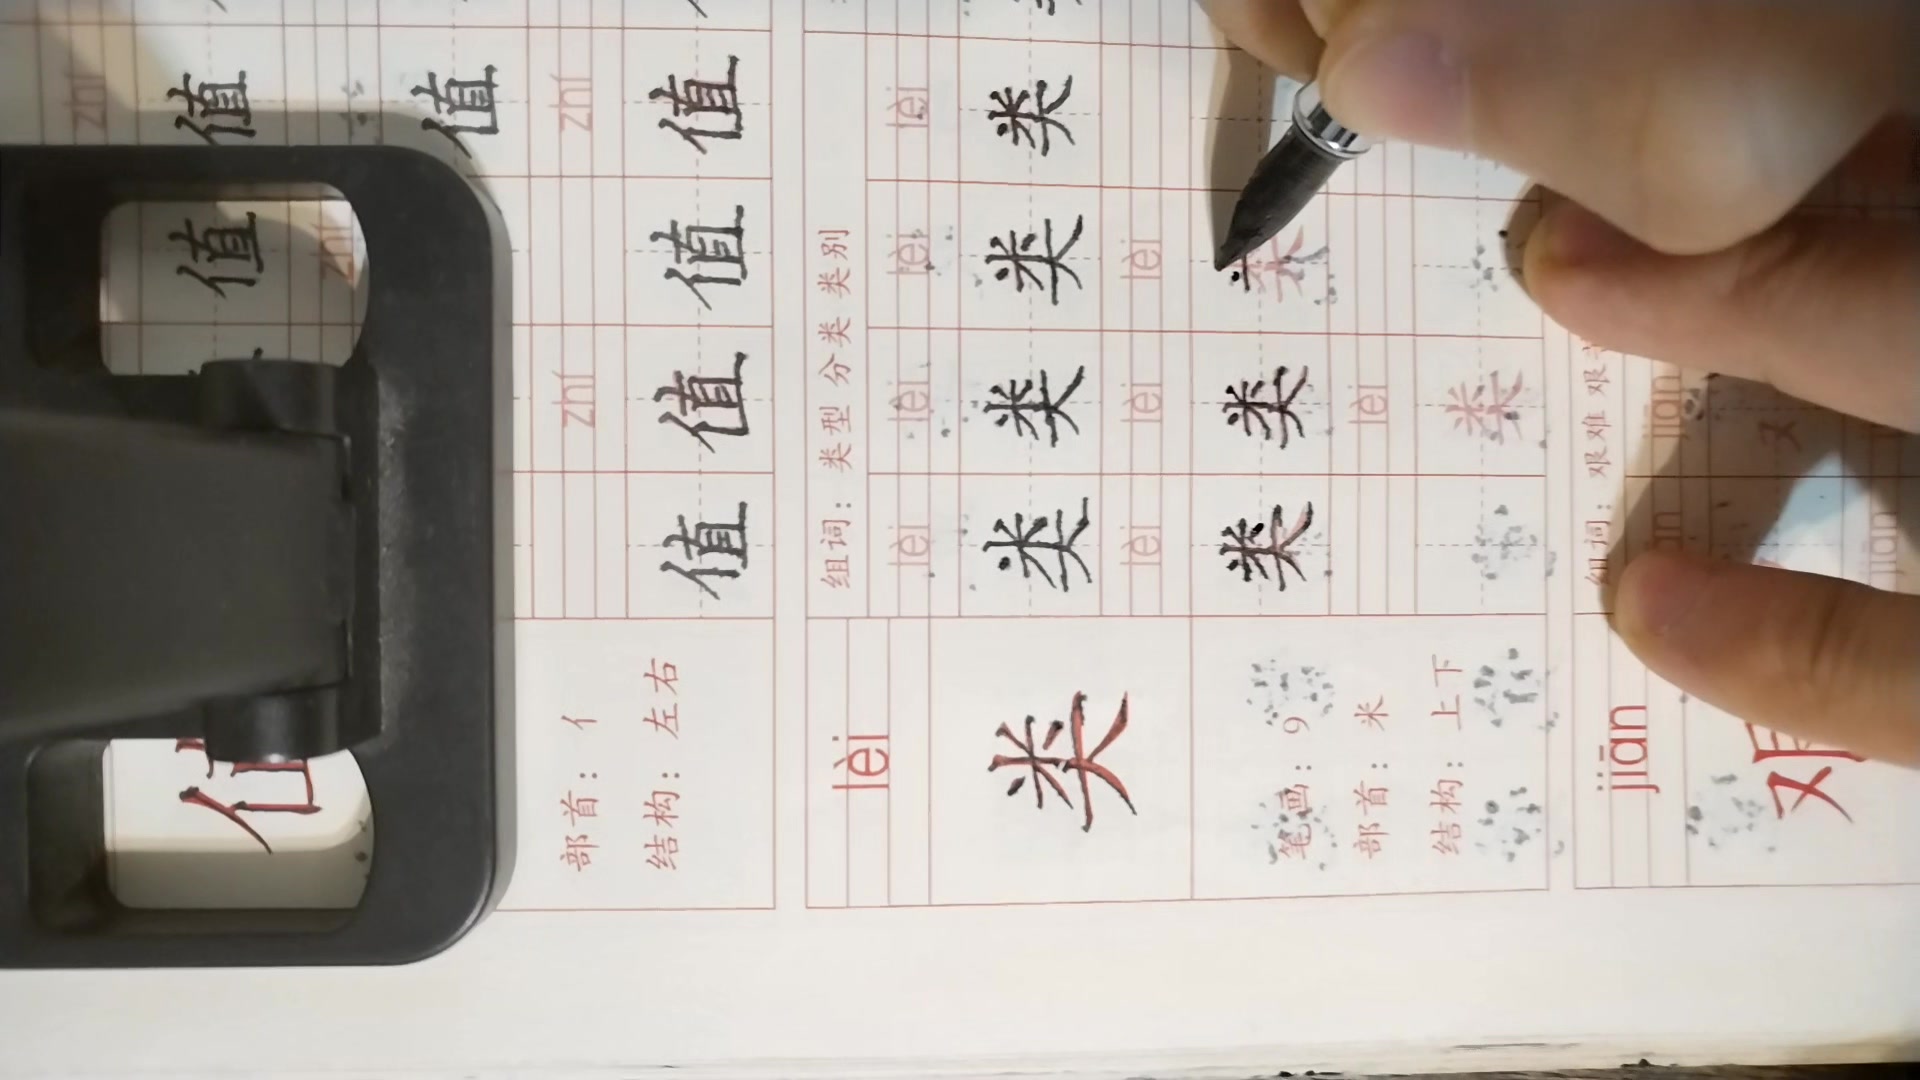 zhí
值 值 值
zhí
值
部首：亻
结构：左右
zhí zhí
值 值 值 值
lèi
组词：类型 分类 类别
lèi lèi lèi lèi
类
类 类 类 类
lèi lèi lèi
类 类 类
笔画：9
部首：米
结构：上下
lèi
类
jiān
组词：艰难
jiān